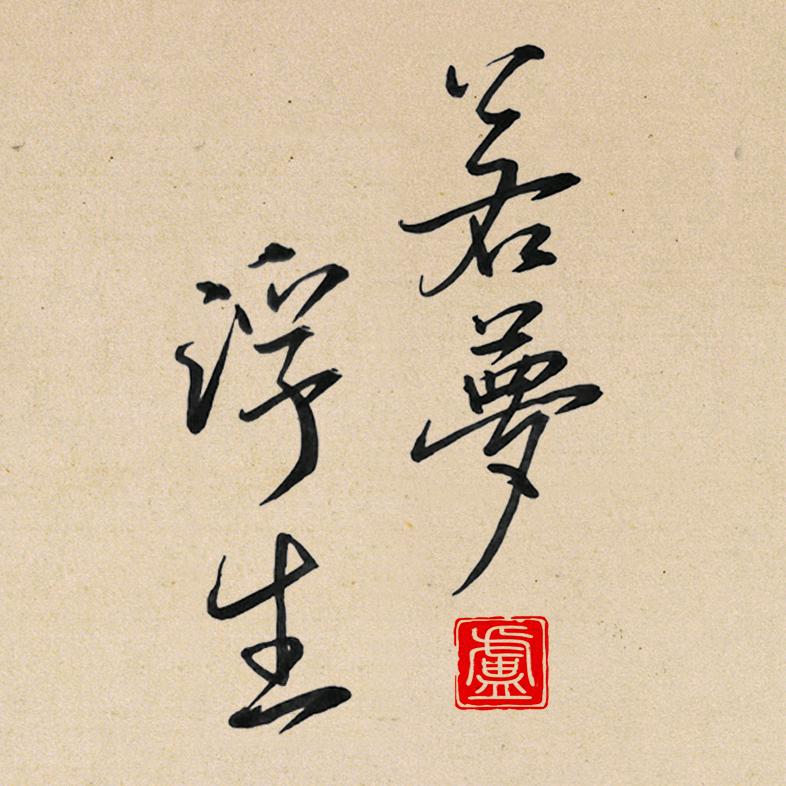 浮生
若夢
盧